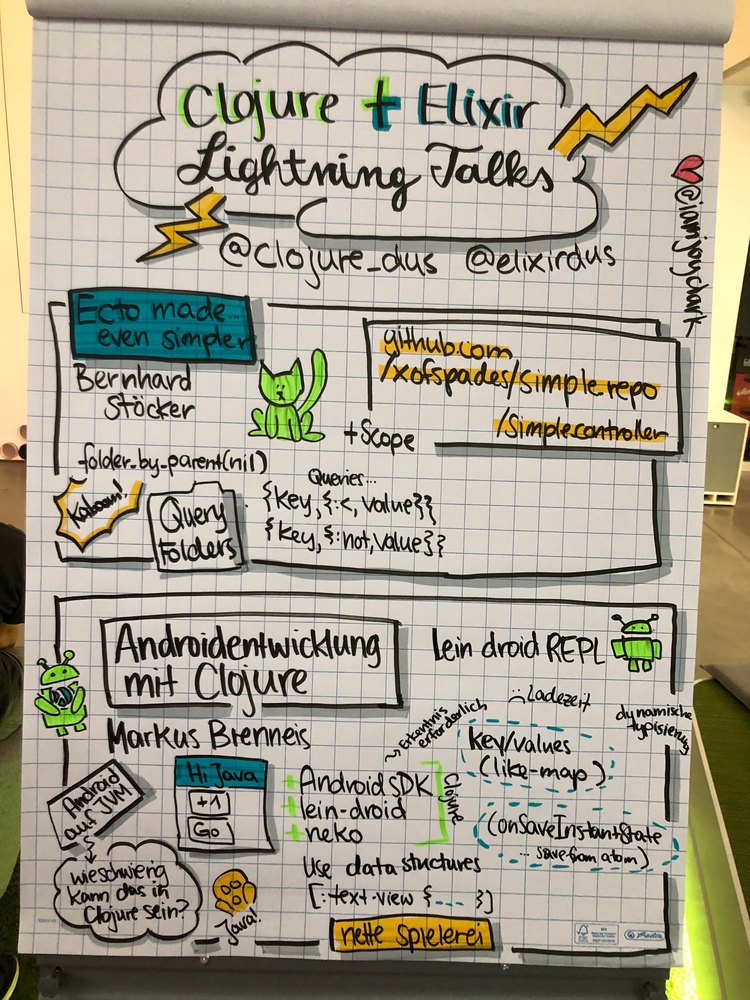 Clojure + Elixir
Lightning Talks
@clojure_dus @elixirdus
Ecto made...
even simpler
Bernhard
Stöcker
github.com
/xofspades/simple.repo
/simple.controller
+Scope
folder_by_parent(nil)
Kaboom!
Query
Folders
Queries...
{key, {:<, value}}
{key, {:not, value}}
Androidentwicklung
mit Clojure
Markus Brenneis
lein droid REPL
Ladezeit
dynamische
typisierung
Erkenntnis
erforderlich
key/values
(like-map)
Android auf JVM
Hi Java
+1
Go
+Android SDK
+lein-droid
+neko
Clojure
(onSaveInstantState
... save from atom)
wie schwierig
kann das in
Clojure sein?
Java!
Use data stuctures
[:text-view {--- }]
nette Spielerei